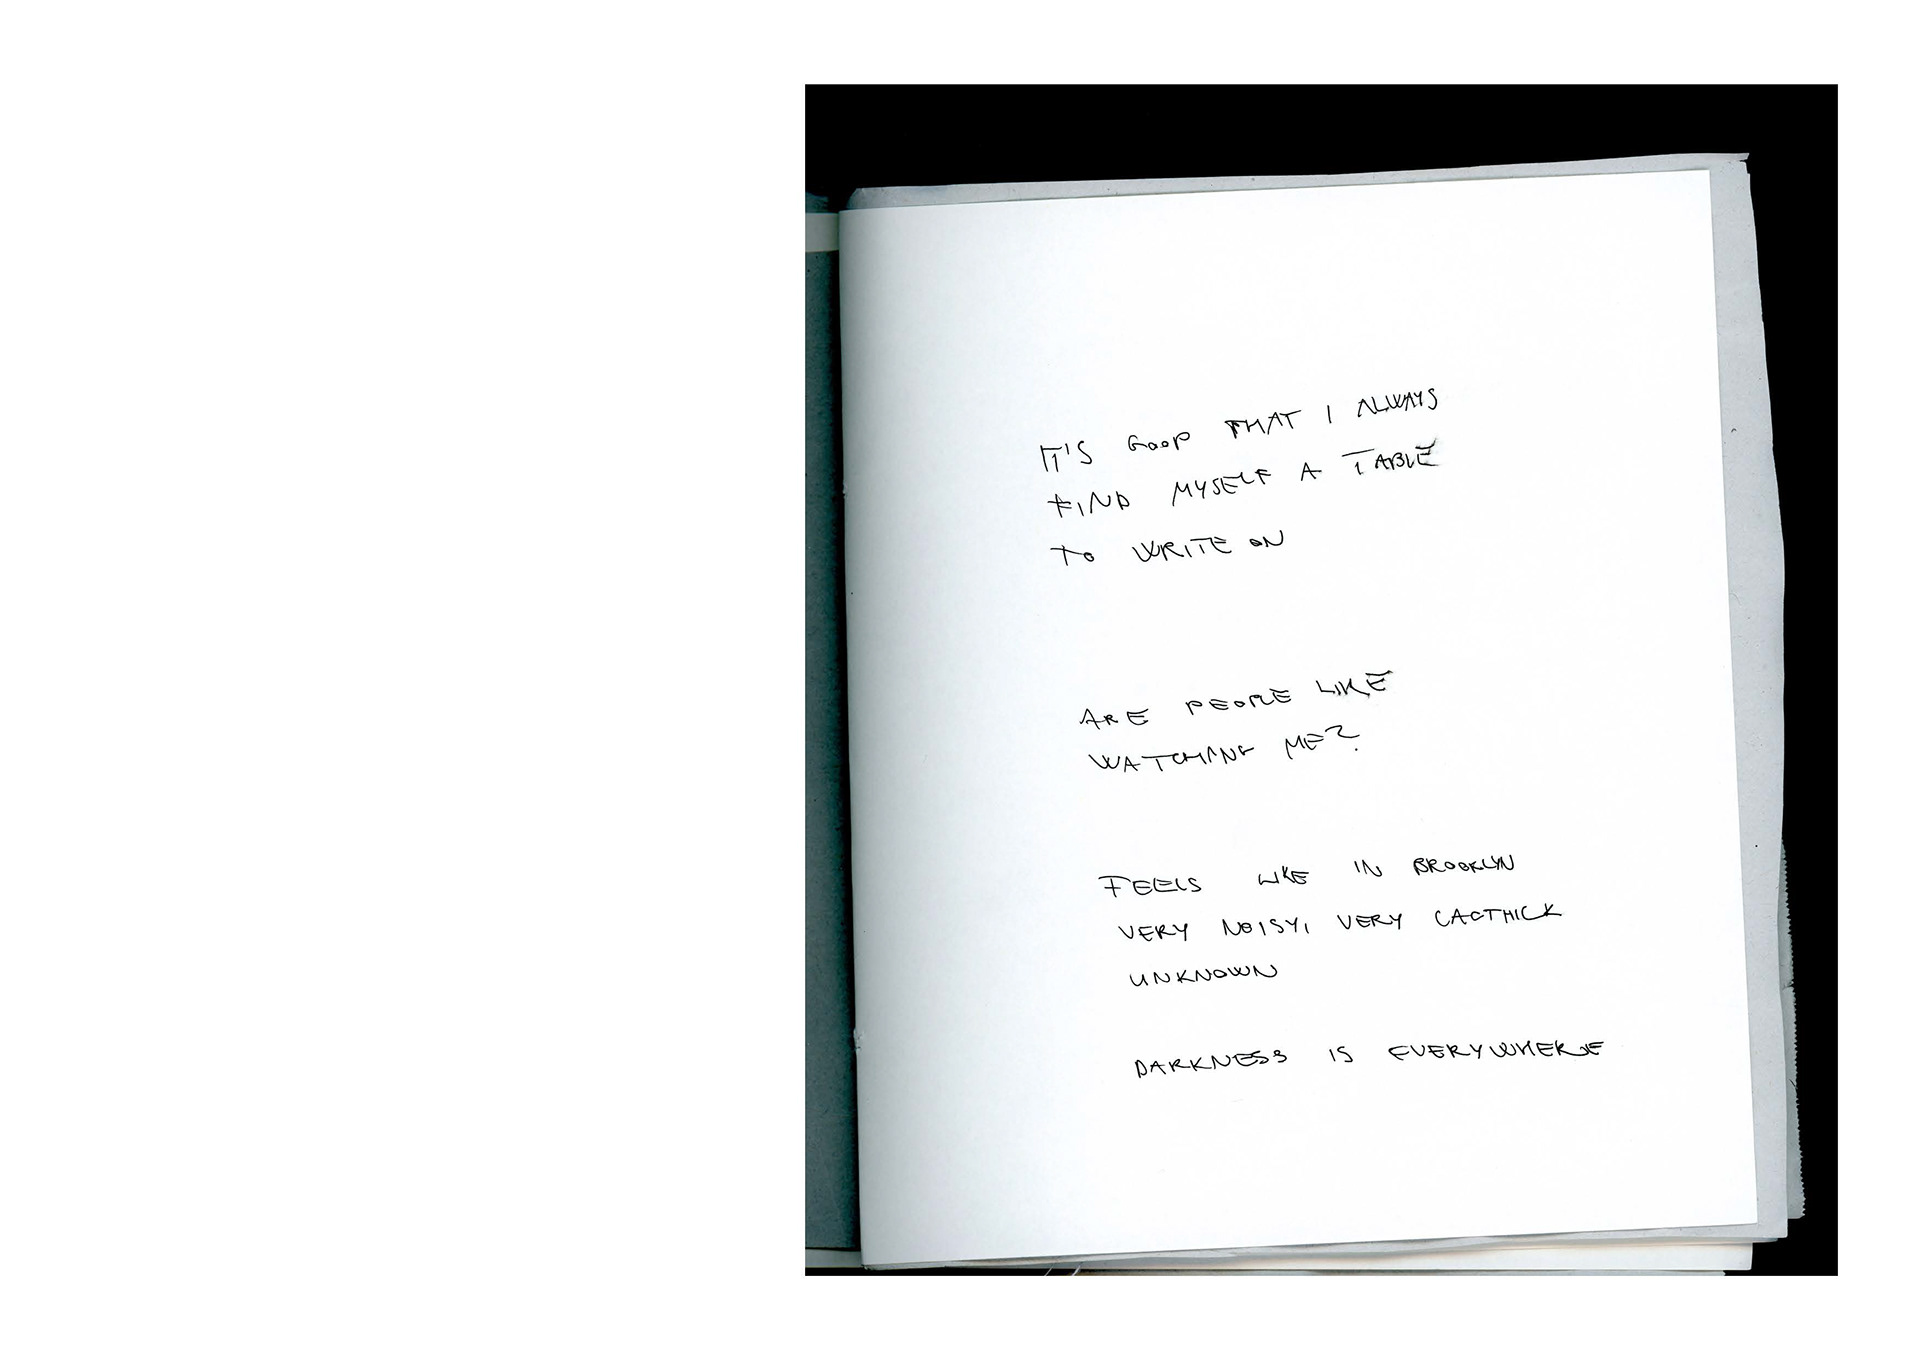 IT'S GOOD THAT I ALWAYS
FIND MYSELF A TABLE
TO WRITE ON
ARE PEOPLE LIKE
WATCHING ME?
FEELS LIKE IN BROOKLYN
VERY NOISY, VERY CAOTHICK
UNKNOWN
DARKNESS IS EVERYWHERE